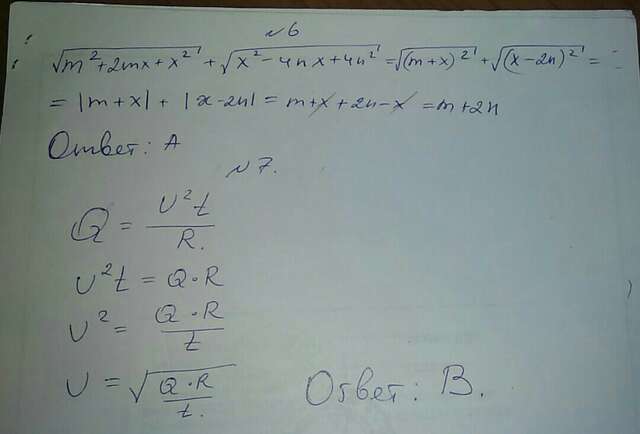 №6
√(m²+2mx+x²) + √(x²-4nx+4n²) = √(m+x)² + √(x-2n)² =
= |m+x| + |x-2n| = m+x+2n-x = m+2n
Ответ: А
№7.
Q = U²t / R.
U²t = Q·R
U² = Q·R / t
U = √(Q·R / t.)
Ответ: В.